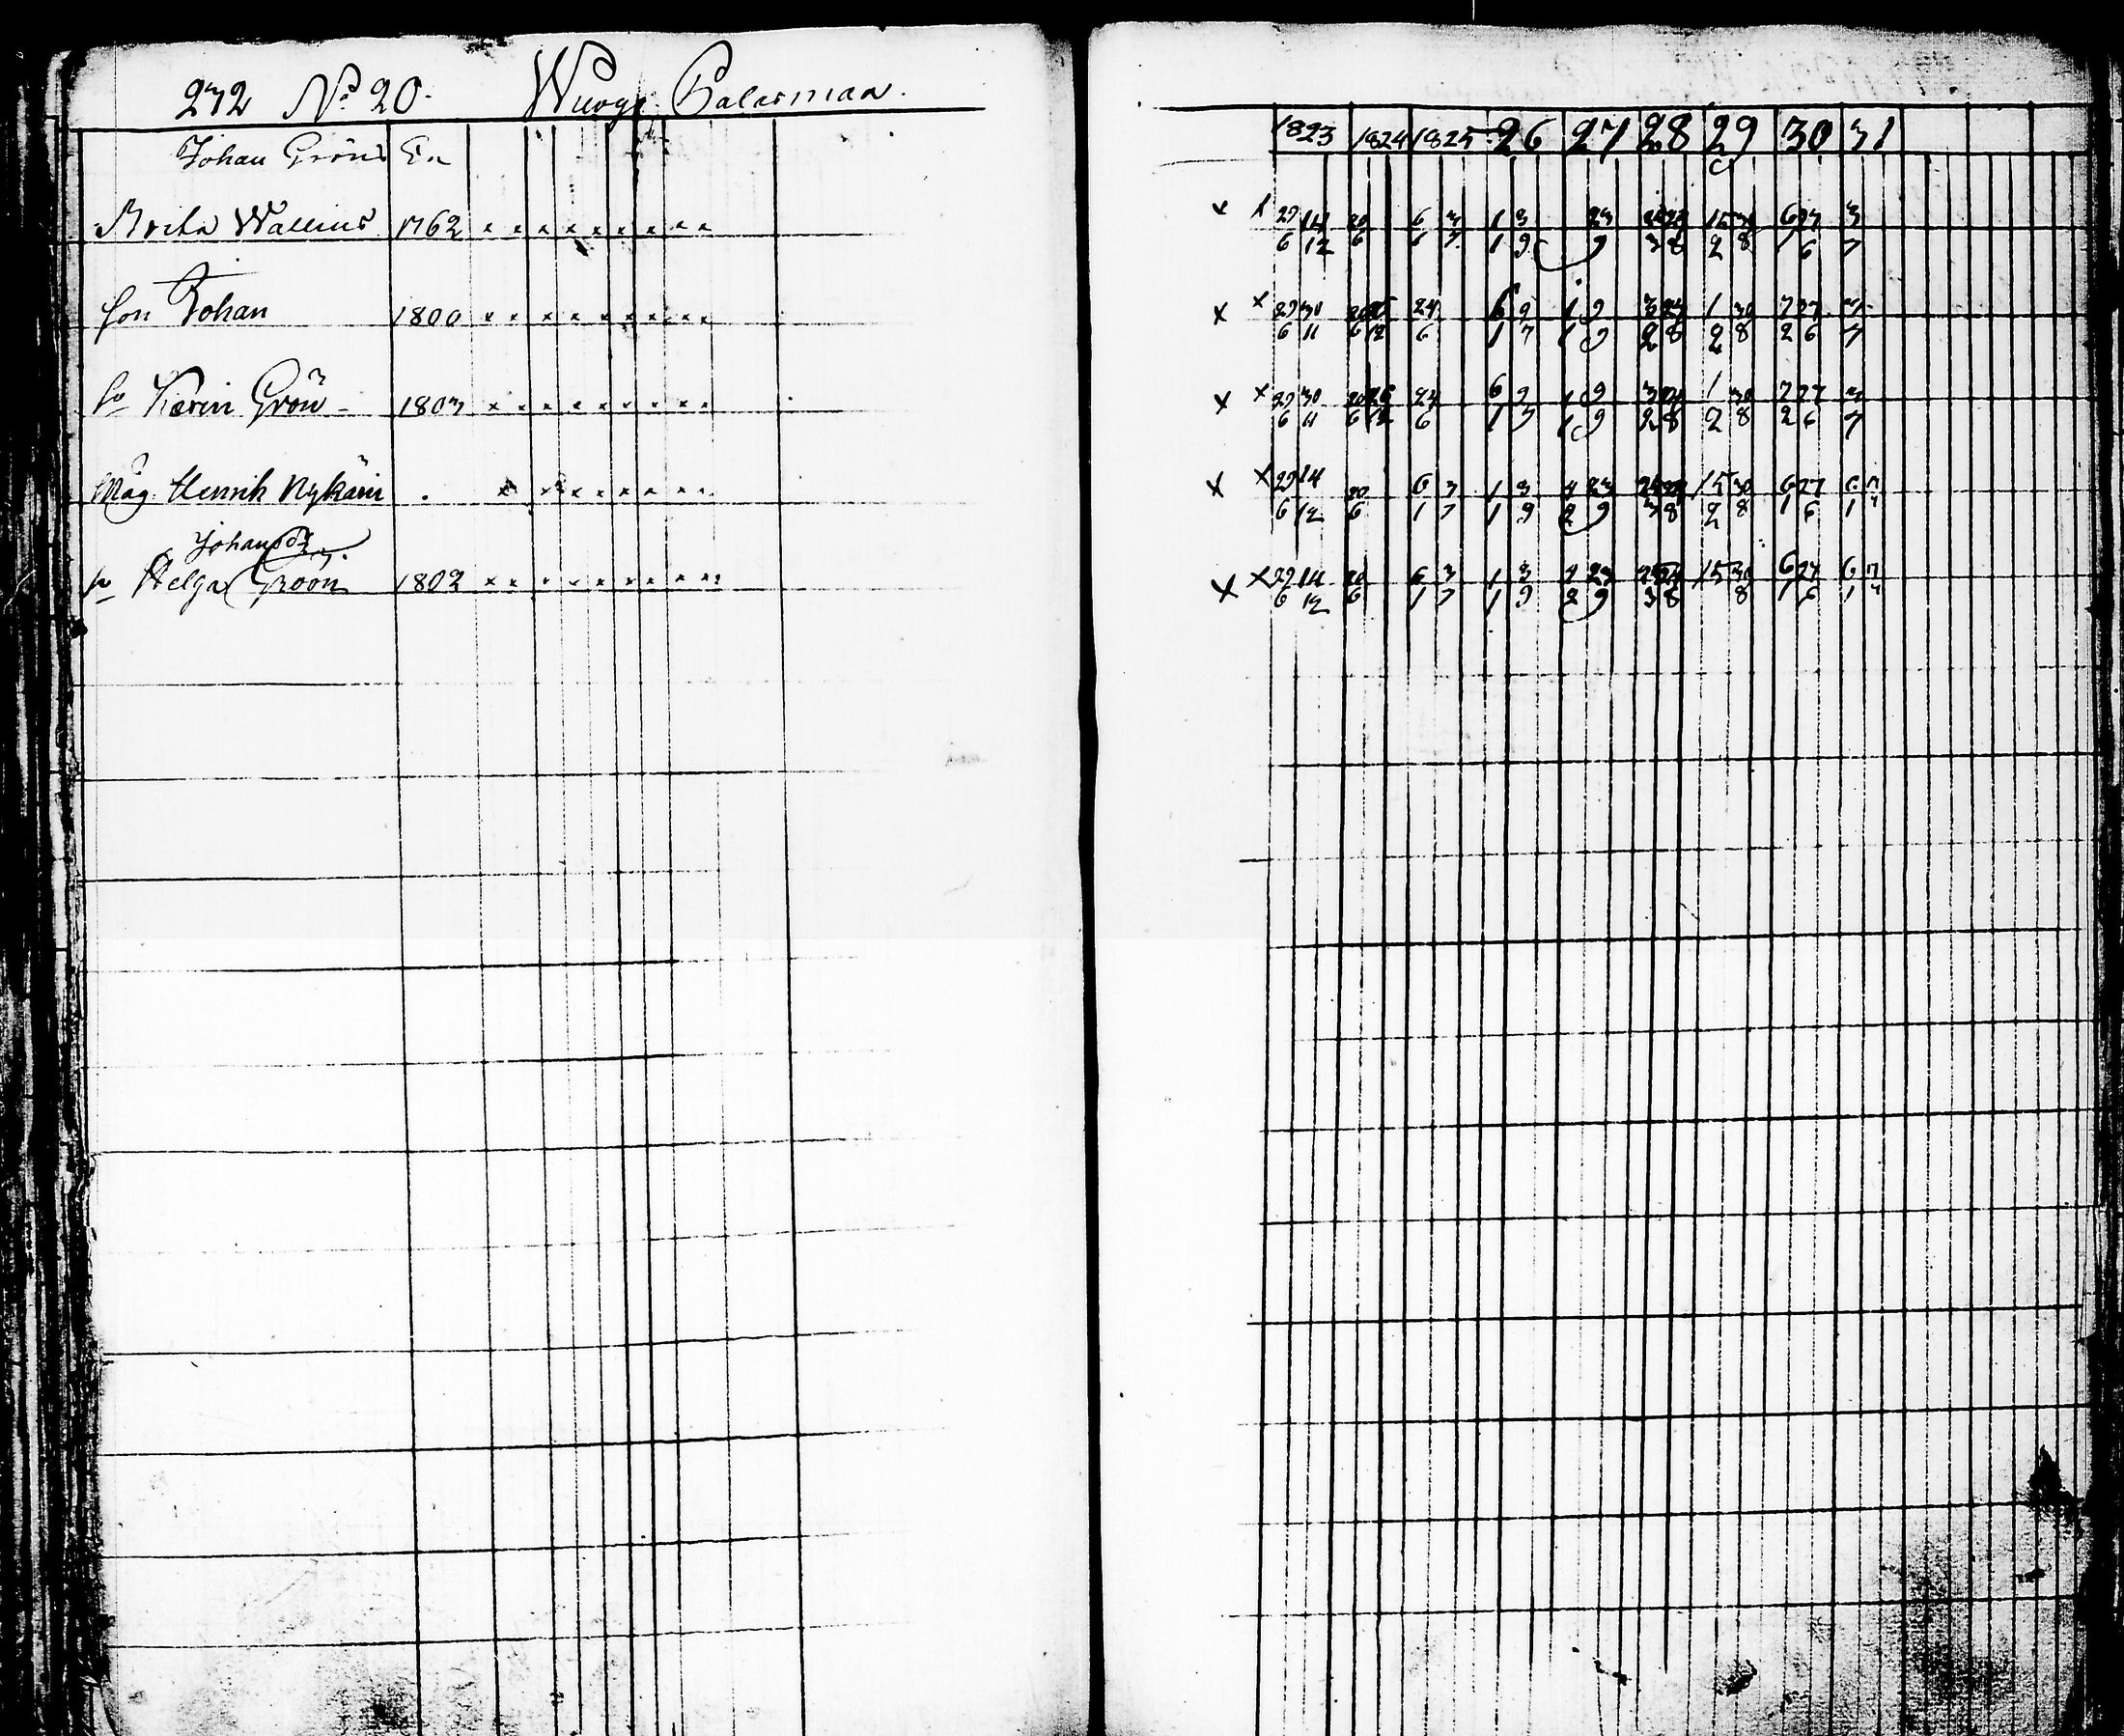 272 No 20. Wuogi Balarmaa.
1823 1824 1825 26 27 28 29 30 31
Johan Gröns En
Brita Wallius 1762 x x x x x x x x x x x 29 14 20 6 3 1 3 23 15 30 6 27 3
6 12 6 1 7 1 9 9 3 8 2 8 1 6 7
Son Johan 1800 x x x x x x x x x x x 29 30 24 6 9 1 9 1 30 7 27 3
6 11 6 12 6 1 7 1 9 2 8 2 8 2 6 7
hu Karin Grön 1803 x x x x x x x x x x x 29 30 24 6 9 1 9 1 30 7 27 3
6 11 6 12 6 1 7 1 9 2 8 2 8 2 6 7
Måg. Henrik Nykäin . x x x x x x x x x x 29 14 20 6 3 1 3 4 23 15 30 6 27
6 12 6 1 7 1 9 2 9 3 8 2 8 1 6 1
Johansdr
hu Helga Gröön 1802 x x x x x x x x x x x 29 14 20 6 3 1 3 4 23 15 30 6 27
6 12 6 1 7 1 9 2 9 3 8 8 1 6 1